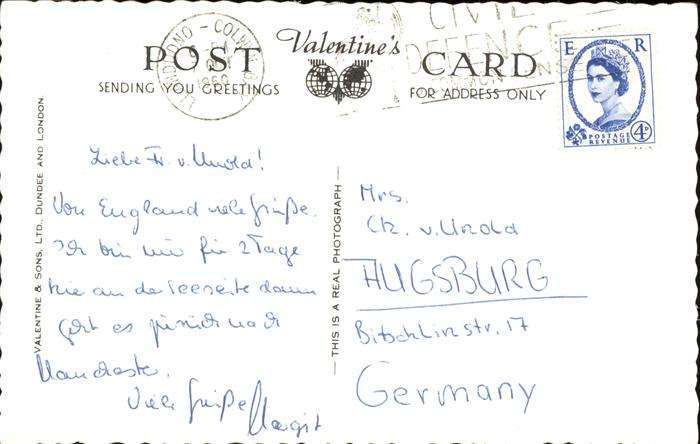 CIVIL
DEFENCE
LLANDUDNO - COLWYN BAY
1960
POST Valentine's CARD
SENDING YOU GREETINGS FOR ADDRESS ONLY
E R
POSTAGE
REVENUE
4D
VALENTINE & SONS, LTD., DUNDEE AND LONDON.
Liebe Fr. v. Unold!
Von England viele Grüße.
Ich bin nur für 2 Tage
hier an der Seeseite dann
geht es zurück nach
Manchester.
Viele Grüße Margit
— THIS IS A REAL PHOTOGRAPH —
Mrs.
v. Unold
AUGSBURG
Bitschlinstr. 17
Germany